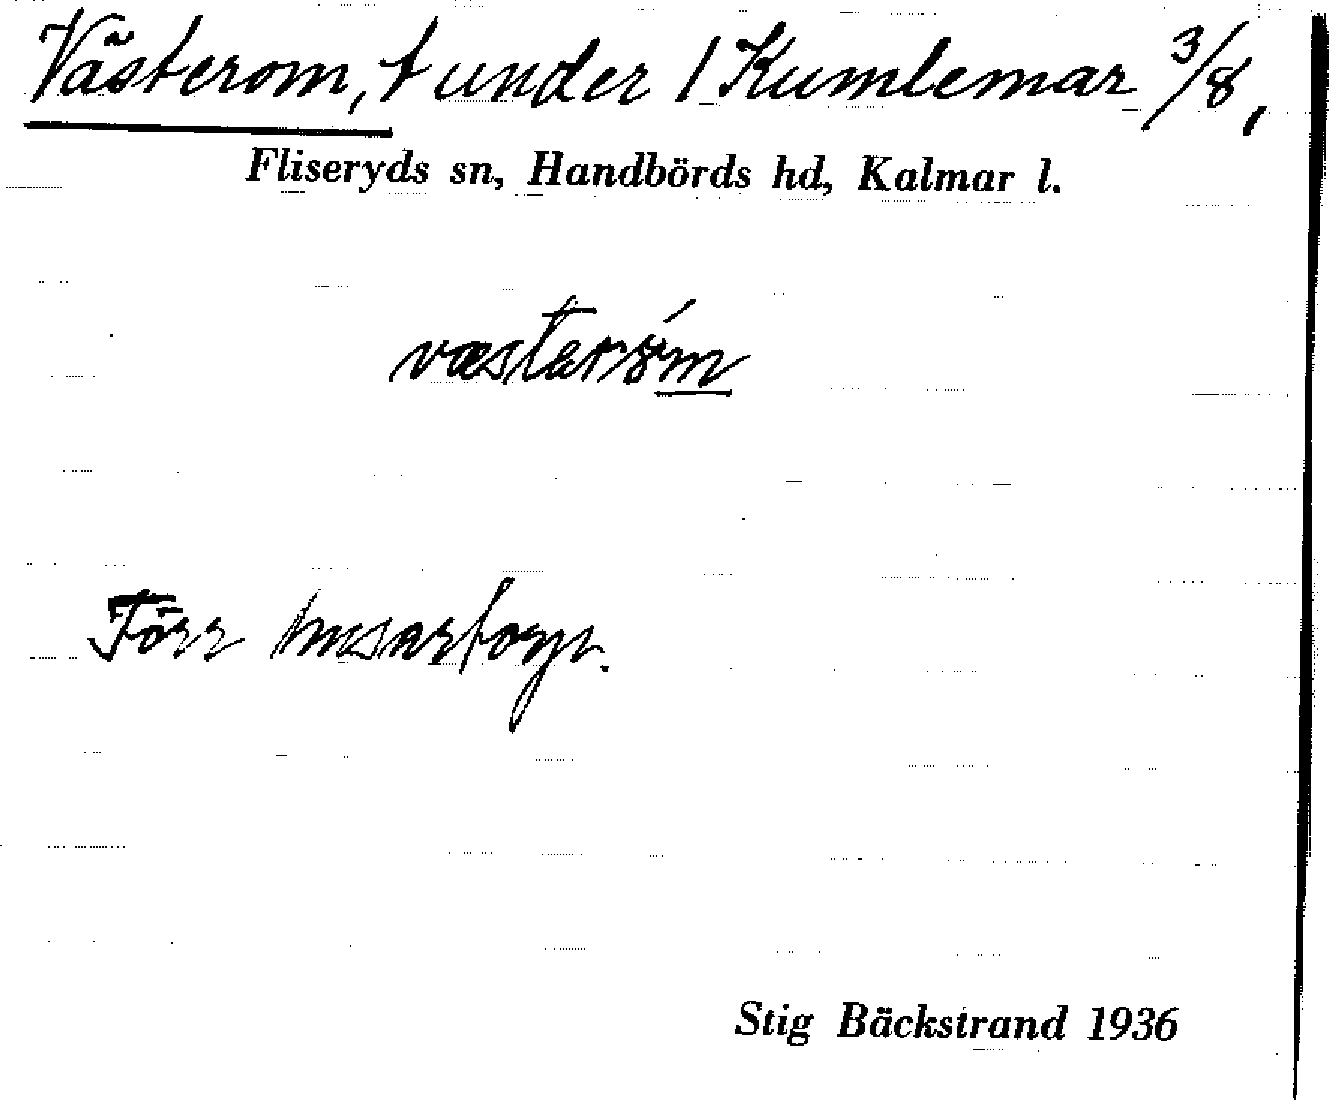 Västerom, t under 1 Kumlemar 3/8,
Fliseryds sn, Handbörds hd, Kalmar l.
Förr husartorp.
Stig Bäckstrand 1936